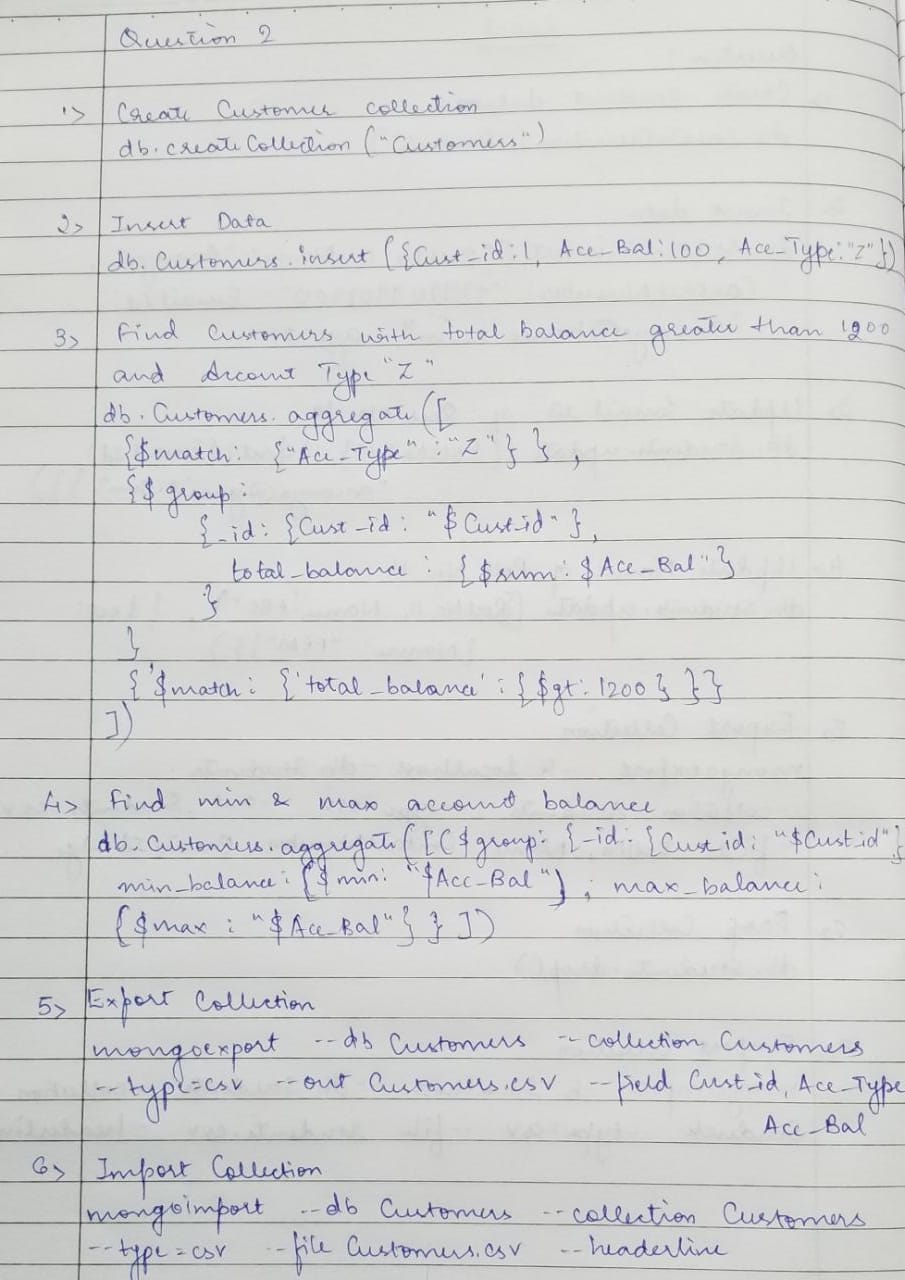 Question 2
1> Create Customer collection
db.createCollection ("Customers")
2> Insert Data
db.Customers.insert ({Cust_id:1, Acc_Bal:100, Acc_Type:"Z"})
3> Find Customers with total balance greater than 1200
and Account Type "Z"
db.Customers.aggregate ([
{$match: {"Acc_Type":"Z"} },
{$ group:
{_id: {Cust_id: "$Cust_id"},
total_balance : {$sum: $Acc_Bal"}
}
}
{'$match: {'total_balance' : {$gt: 1200} }}
])
4> Find min & max account balance
db.Customers.aggregate ([($group: {_id: {Cust_id: "$Cust_id"}
min_balance: {$min: "$Acc_Bal"}, max_balance:
{$max : "$Acc_Bal"} } ])
5> Export Collection
mongoexport --db Customers --collection Customers
--type=csv --out Customers.csv --field Cust_id, Acc_Type
Acc_Bal
6> Import Collection
mongoimport --db Customers --collection Customers
--type=csv --file Customers.csv --headerline